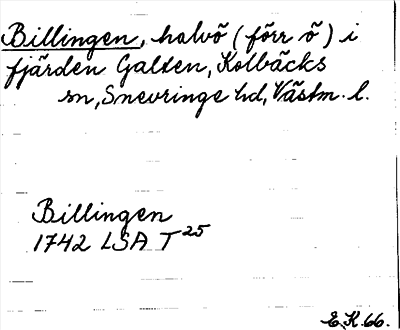 Billingen, halvö (förr ö) i
fjärden Galten, Kolbäcks
sn, Snevringe hd, Västm. l.
Billingen
1742 LSA T 25
E.K. 66.